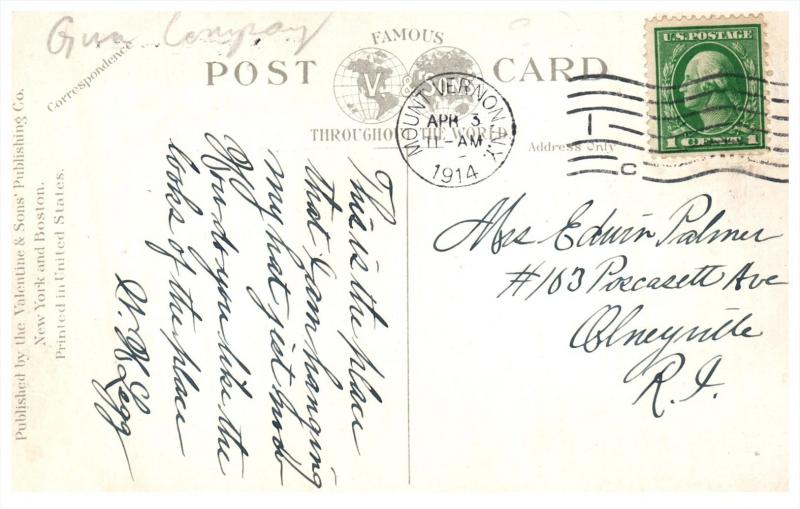 Correspondence
FAMOUS
POST CARD
V. & SONS
THROUGHOUT THE WORLD
Address Only
MOUNT VERNON, N.Y.
APR 3
11-AM
1914
1
C
U.S. POSTAGE
1 CENT 1
Published by the Valentine & Sons' Publishing Co.
New York and Boston.
Printed in United States.
This is the place
that I am hanging
my hat just now
How do you like the
looks of the place
W. H. Legg
Mrs Edwin Palmer
#103 Pocasett Ave
Olneyville
R.I.